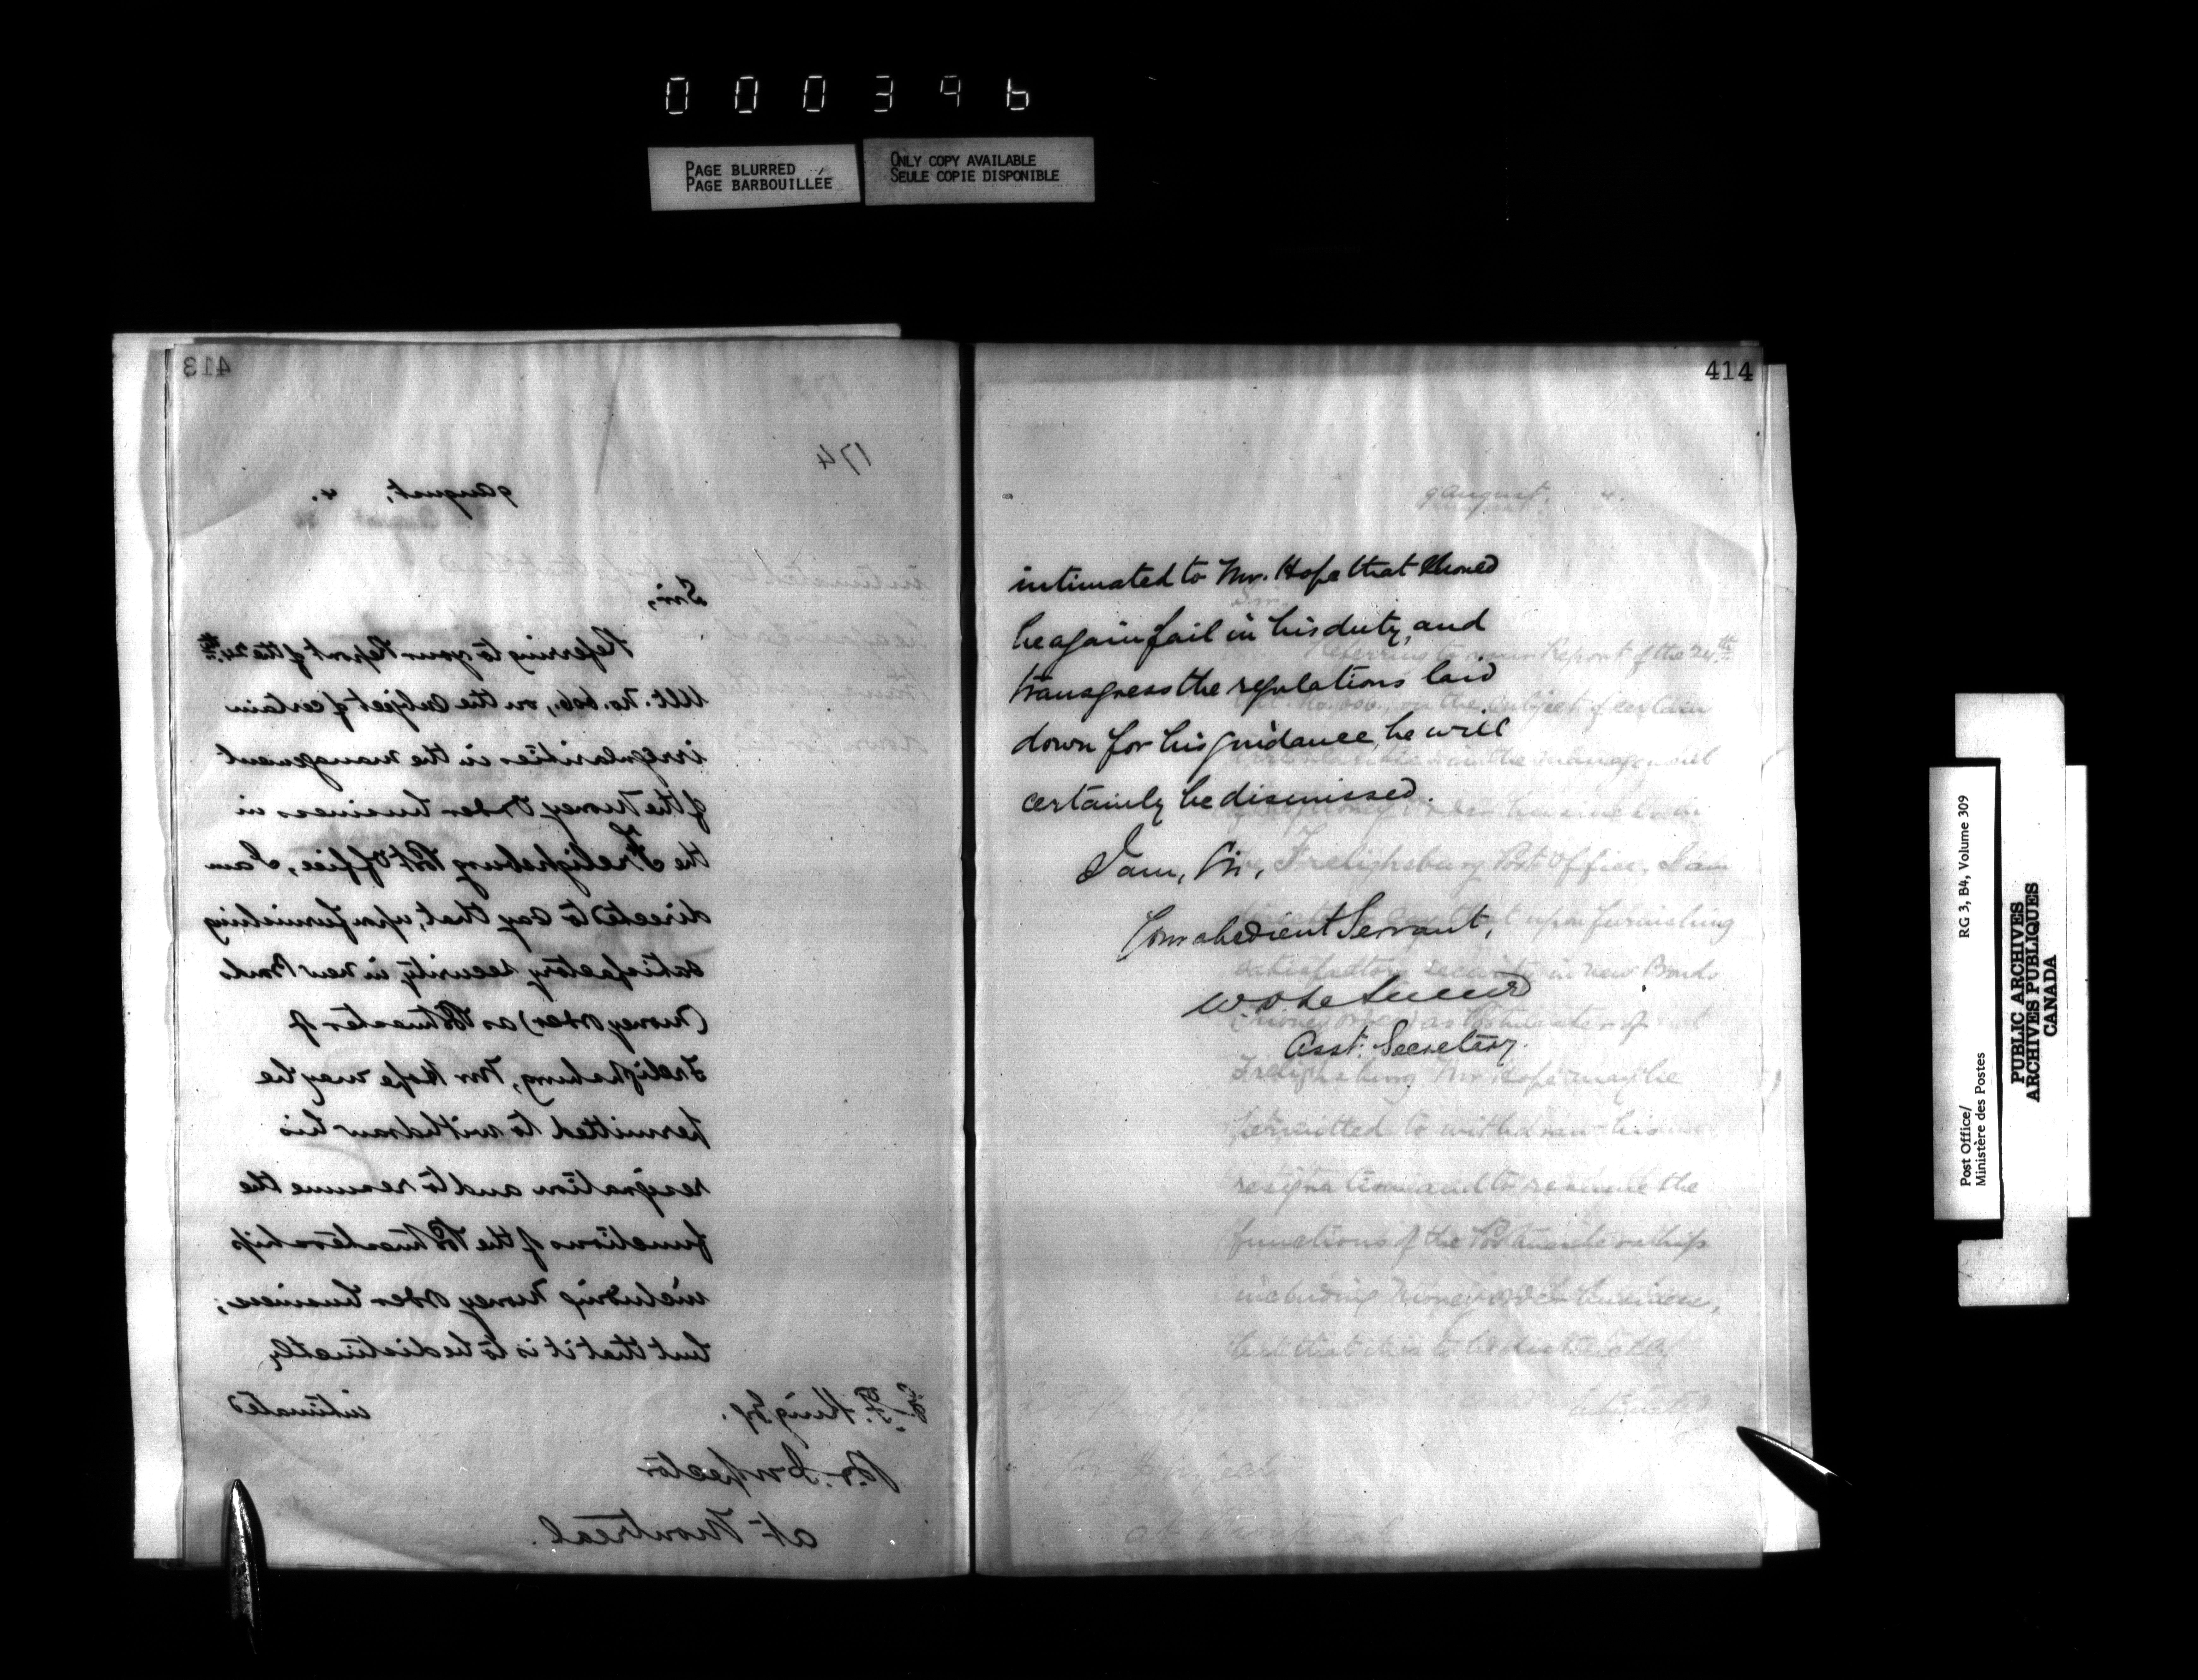 000396
PAGE BLURRED
PAGE BARBOUILLÉE
ONLY COPY AVAILABLE
SEULE COPIE DISPONIBLE
413
174
9 August, 4.
Sir,
Referring to your Report of the 24th
Ult. No. 606, on the subject of certain
irregularities in the management
of the Money Order business in
the Frelighsburg Post Office, I am
directed to say that, upon furnishing
satisfactory security in new Bonds
(Money Order) as Postmaster of
Frelighsburg, Mr Hope may be
permitted to withdraw his
resignation and to resume the
functions of the Postmastership
including Money Order business;
but that it is to be distinctly
intimated
F. King Esq.
P.O. Inspector
at Montreal.
414
intimated to Mr. Hope that should
he again fail in his duty, and
transgress the regulations laid
down for his guidance, he will
certainly be dismissed.
I am, Sir,
Your obedient Servant,
Asst. Secretary.
Post Office/
Ministère des Postes
RG 3, B4, Volume 309
PUBLIC ARCHIVES
ARCHIVES PUBLIQUES
CANADA